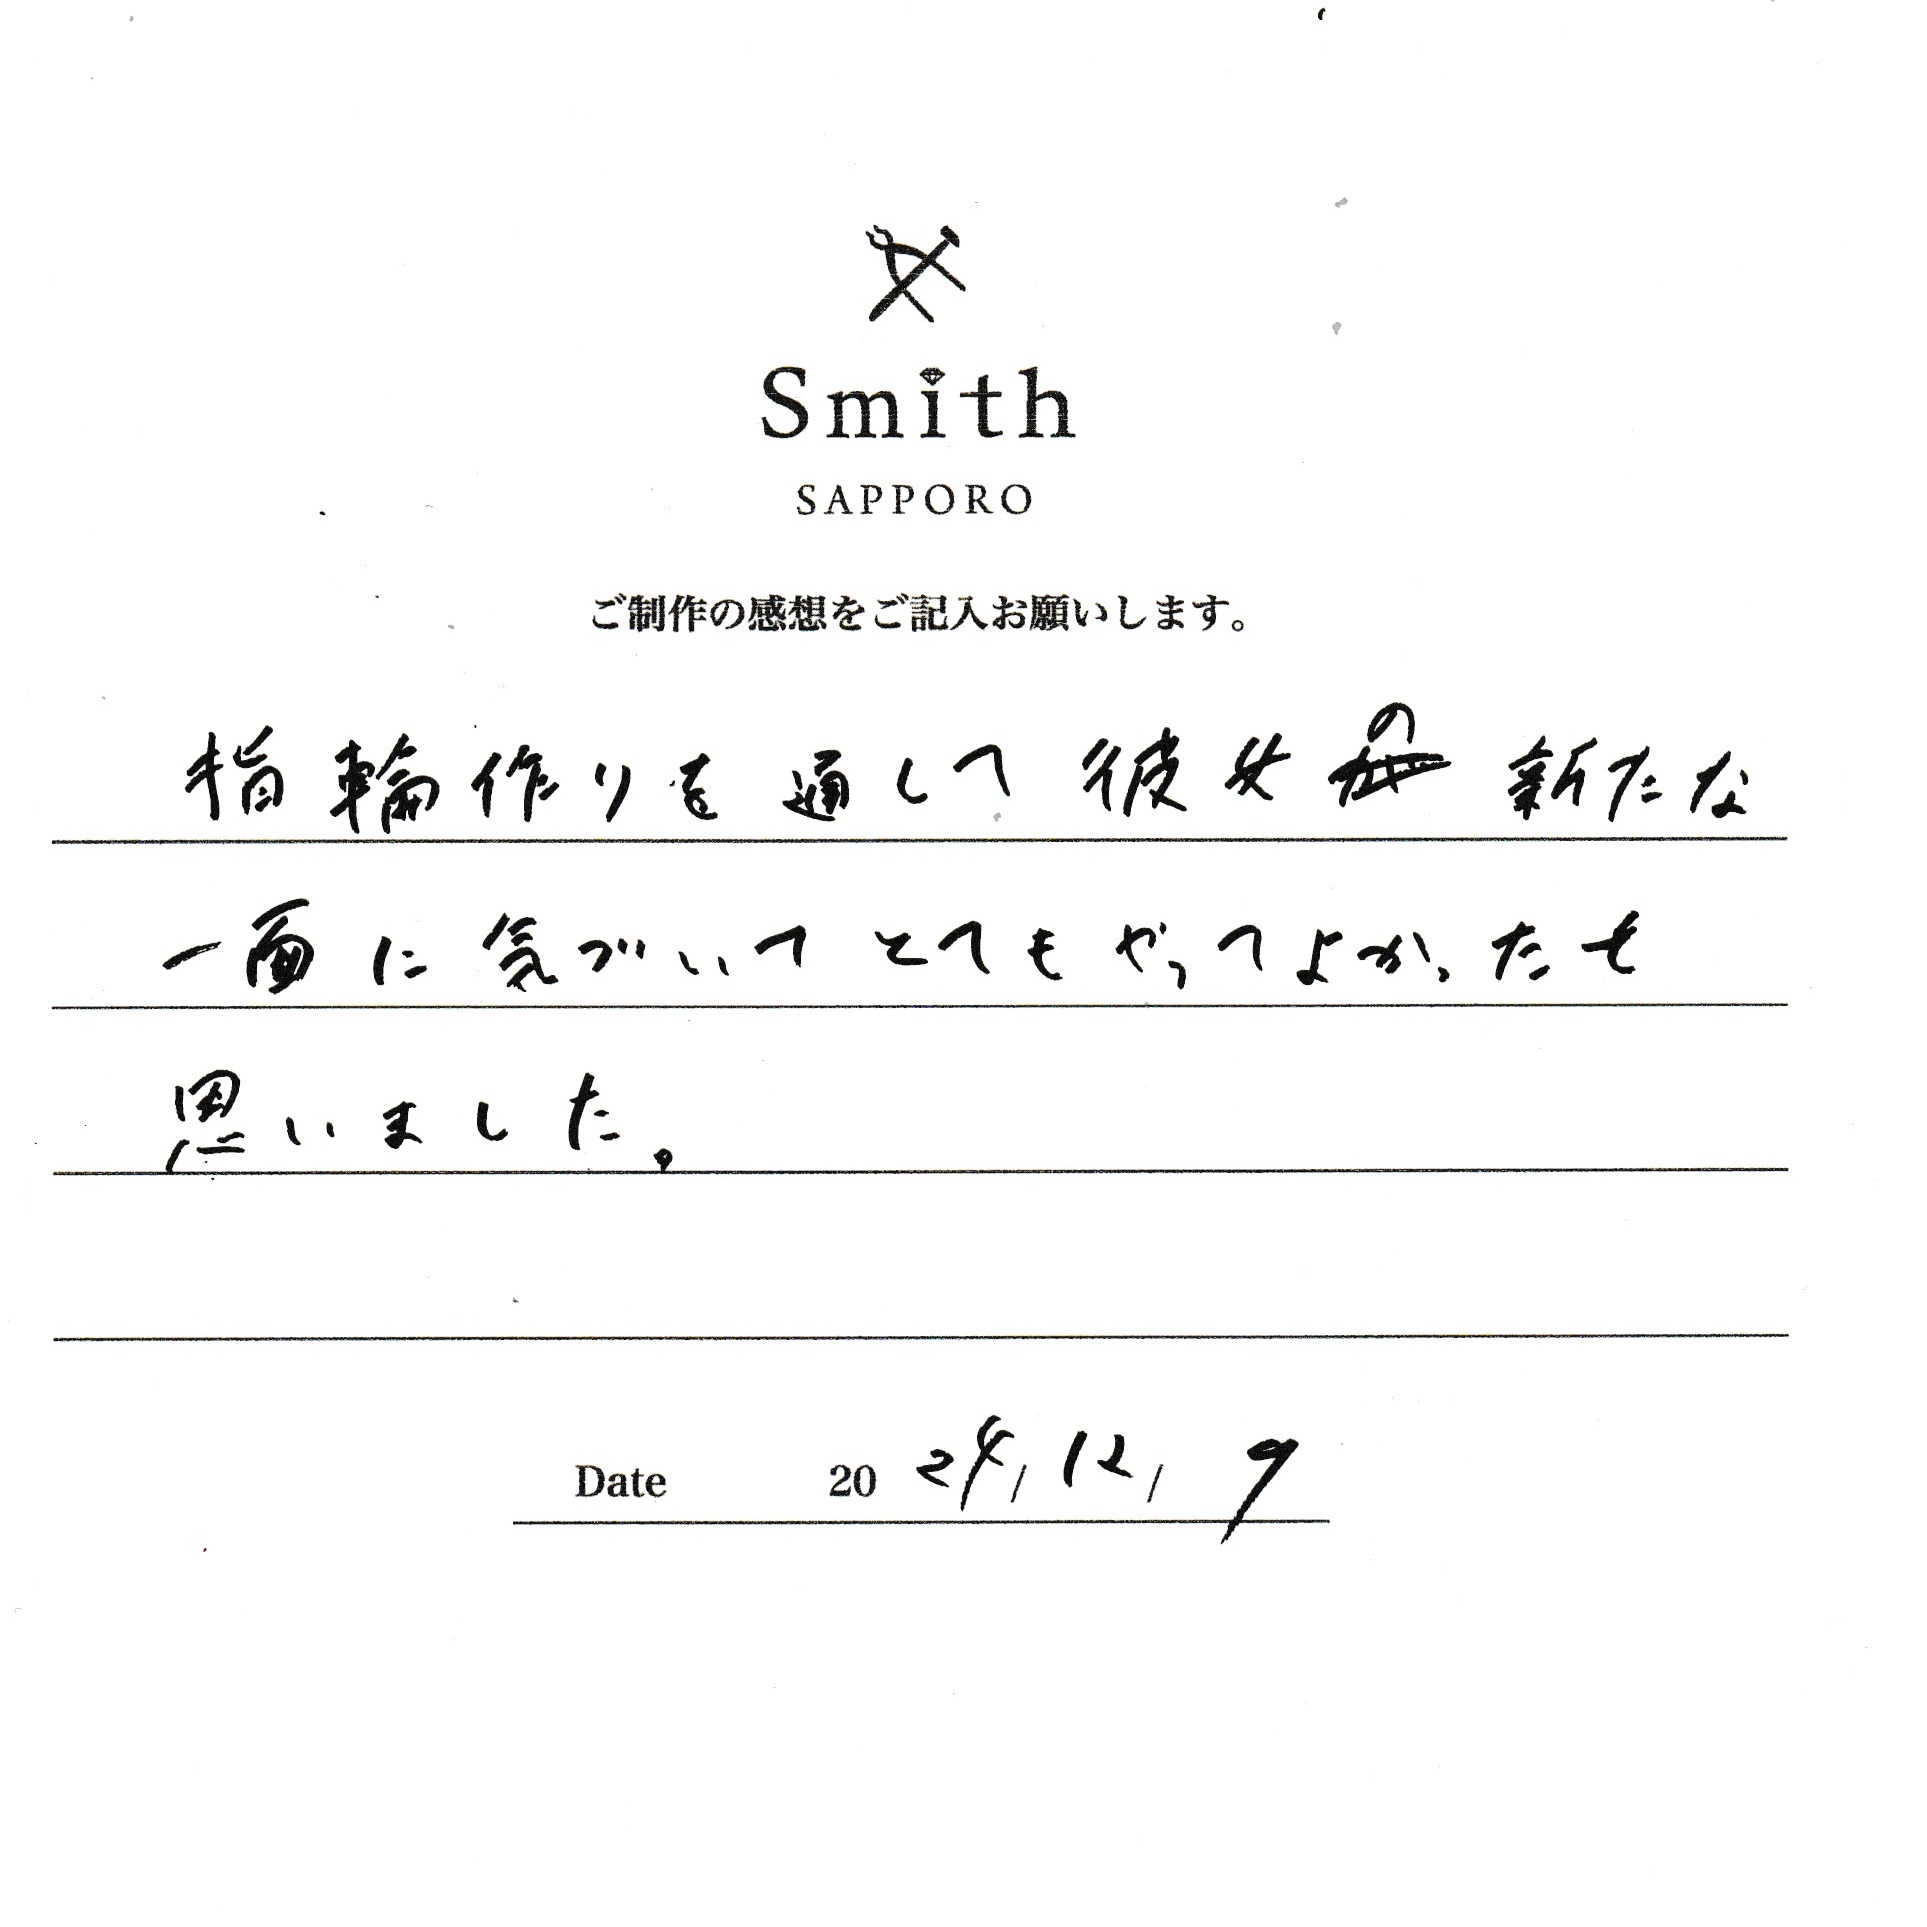 Smith
SAPPORO
ご制作の感想をご記入お願いします。
指輪作りを通して彼女の新たな
一面に気づいてとてもやってよかったと
思いました。
Date 2024/12/9